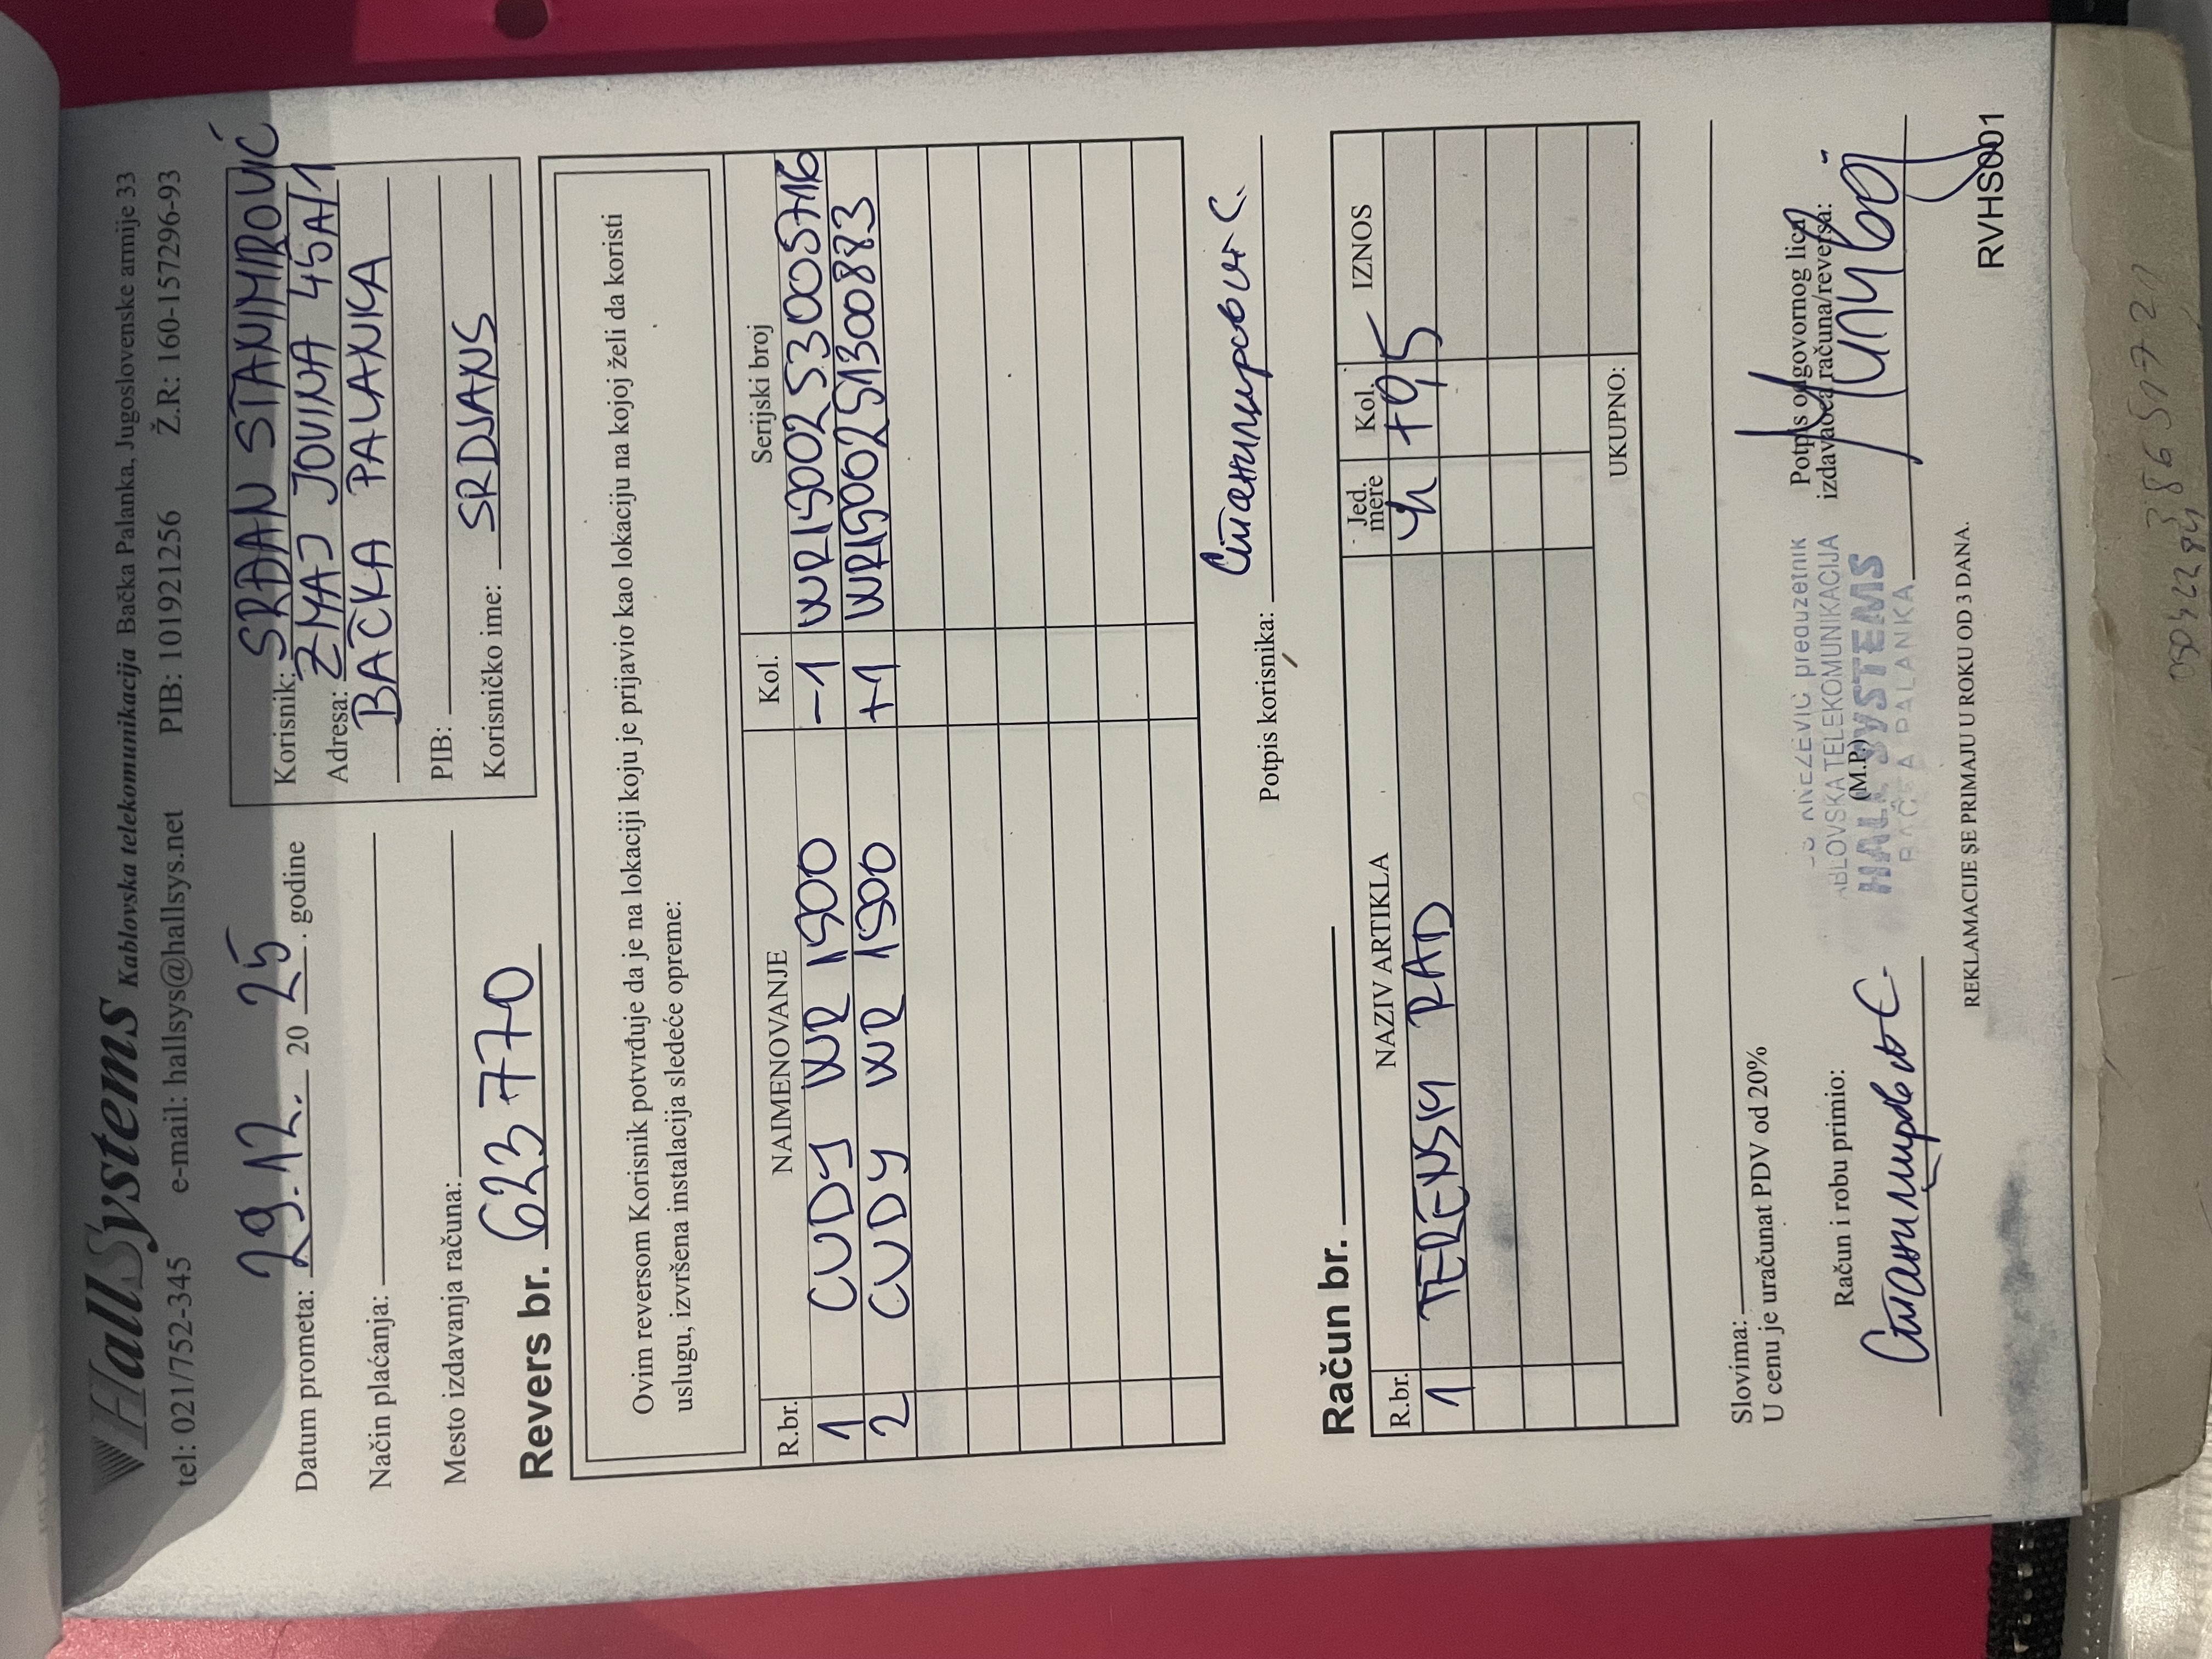 HallSystems Kablovska telekomunikacija Bačka Palanka, Jugoslovenske armije 33
tel: 021/752-345 e-mail: hallsys@hallsys.net PIB: 101921256 Ž.R: 160-157296-93
Datum prometa: 29.12. 20 25. godine
Način plaćanja:
Mesto izdavanja računa:
Revers br. 623770
Korisnik: SRĐAN STANIMIROVIĆ
Adresa: ZMAJ JOVINA 45A/1
BAČKA PALANKA
PIB:
Korisničko ime: SRDJANS
Ovim reversom Korisnik potvrđuje da je na lokaciji koju je prijavio kao lokaciju na kojoj želi da koristi
uslugu, izvršena instalacija sledeće opreme:
R.br. NAIMENOVANJE Kol. Serijski broj
1 CUDY WR 1500 -1 WR15002530057116
2 CUDY WR 1500 +1 WR1500251300883
Potpis korisnika: Станимировић С.
Račun br.
R.br. NAZIV ARTIKLA Jed. mere Kol. IZNOS
1 TERENSKI RAD h +0,5
UKUPNO:
Slovima:
U cenu je uračunat PDV od 20%
Račun i robu primio:
Станимировић С.
(M.P.)
preduzetnik
KABLOVSKA TELEKOMUNIKACIJA
HALL SYSTEMS
BAČKA PALANKA
Potpis odgovornog lica
izdavaoca računa/reversa:
REKLAMACIJE SE PRIMAJU U ROKU OD 3 DANA.
RVHS001